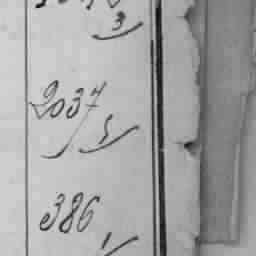 3
2037
5
386
1